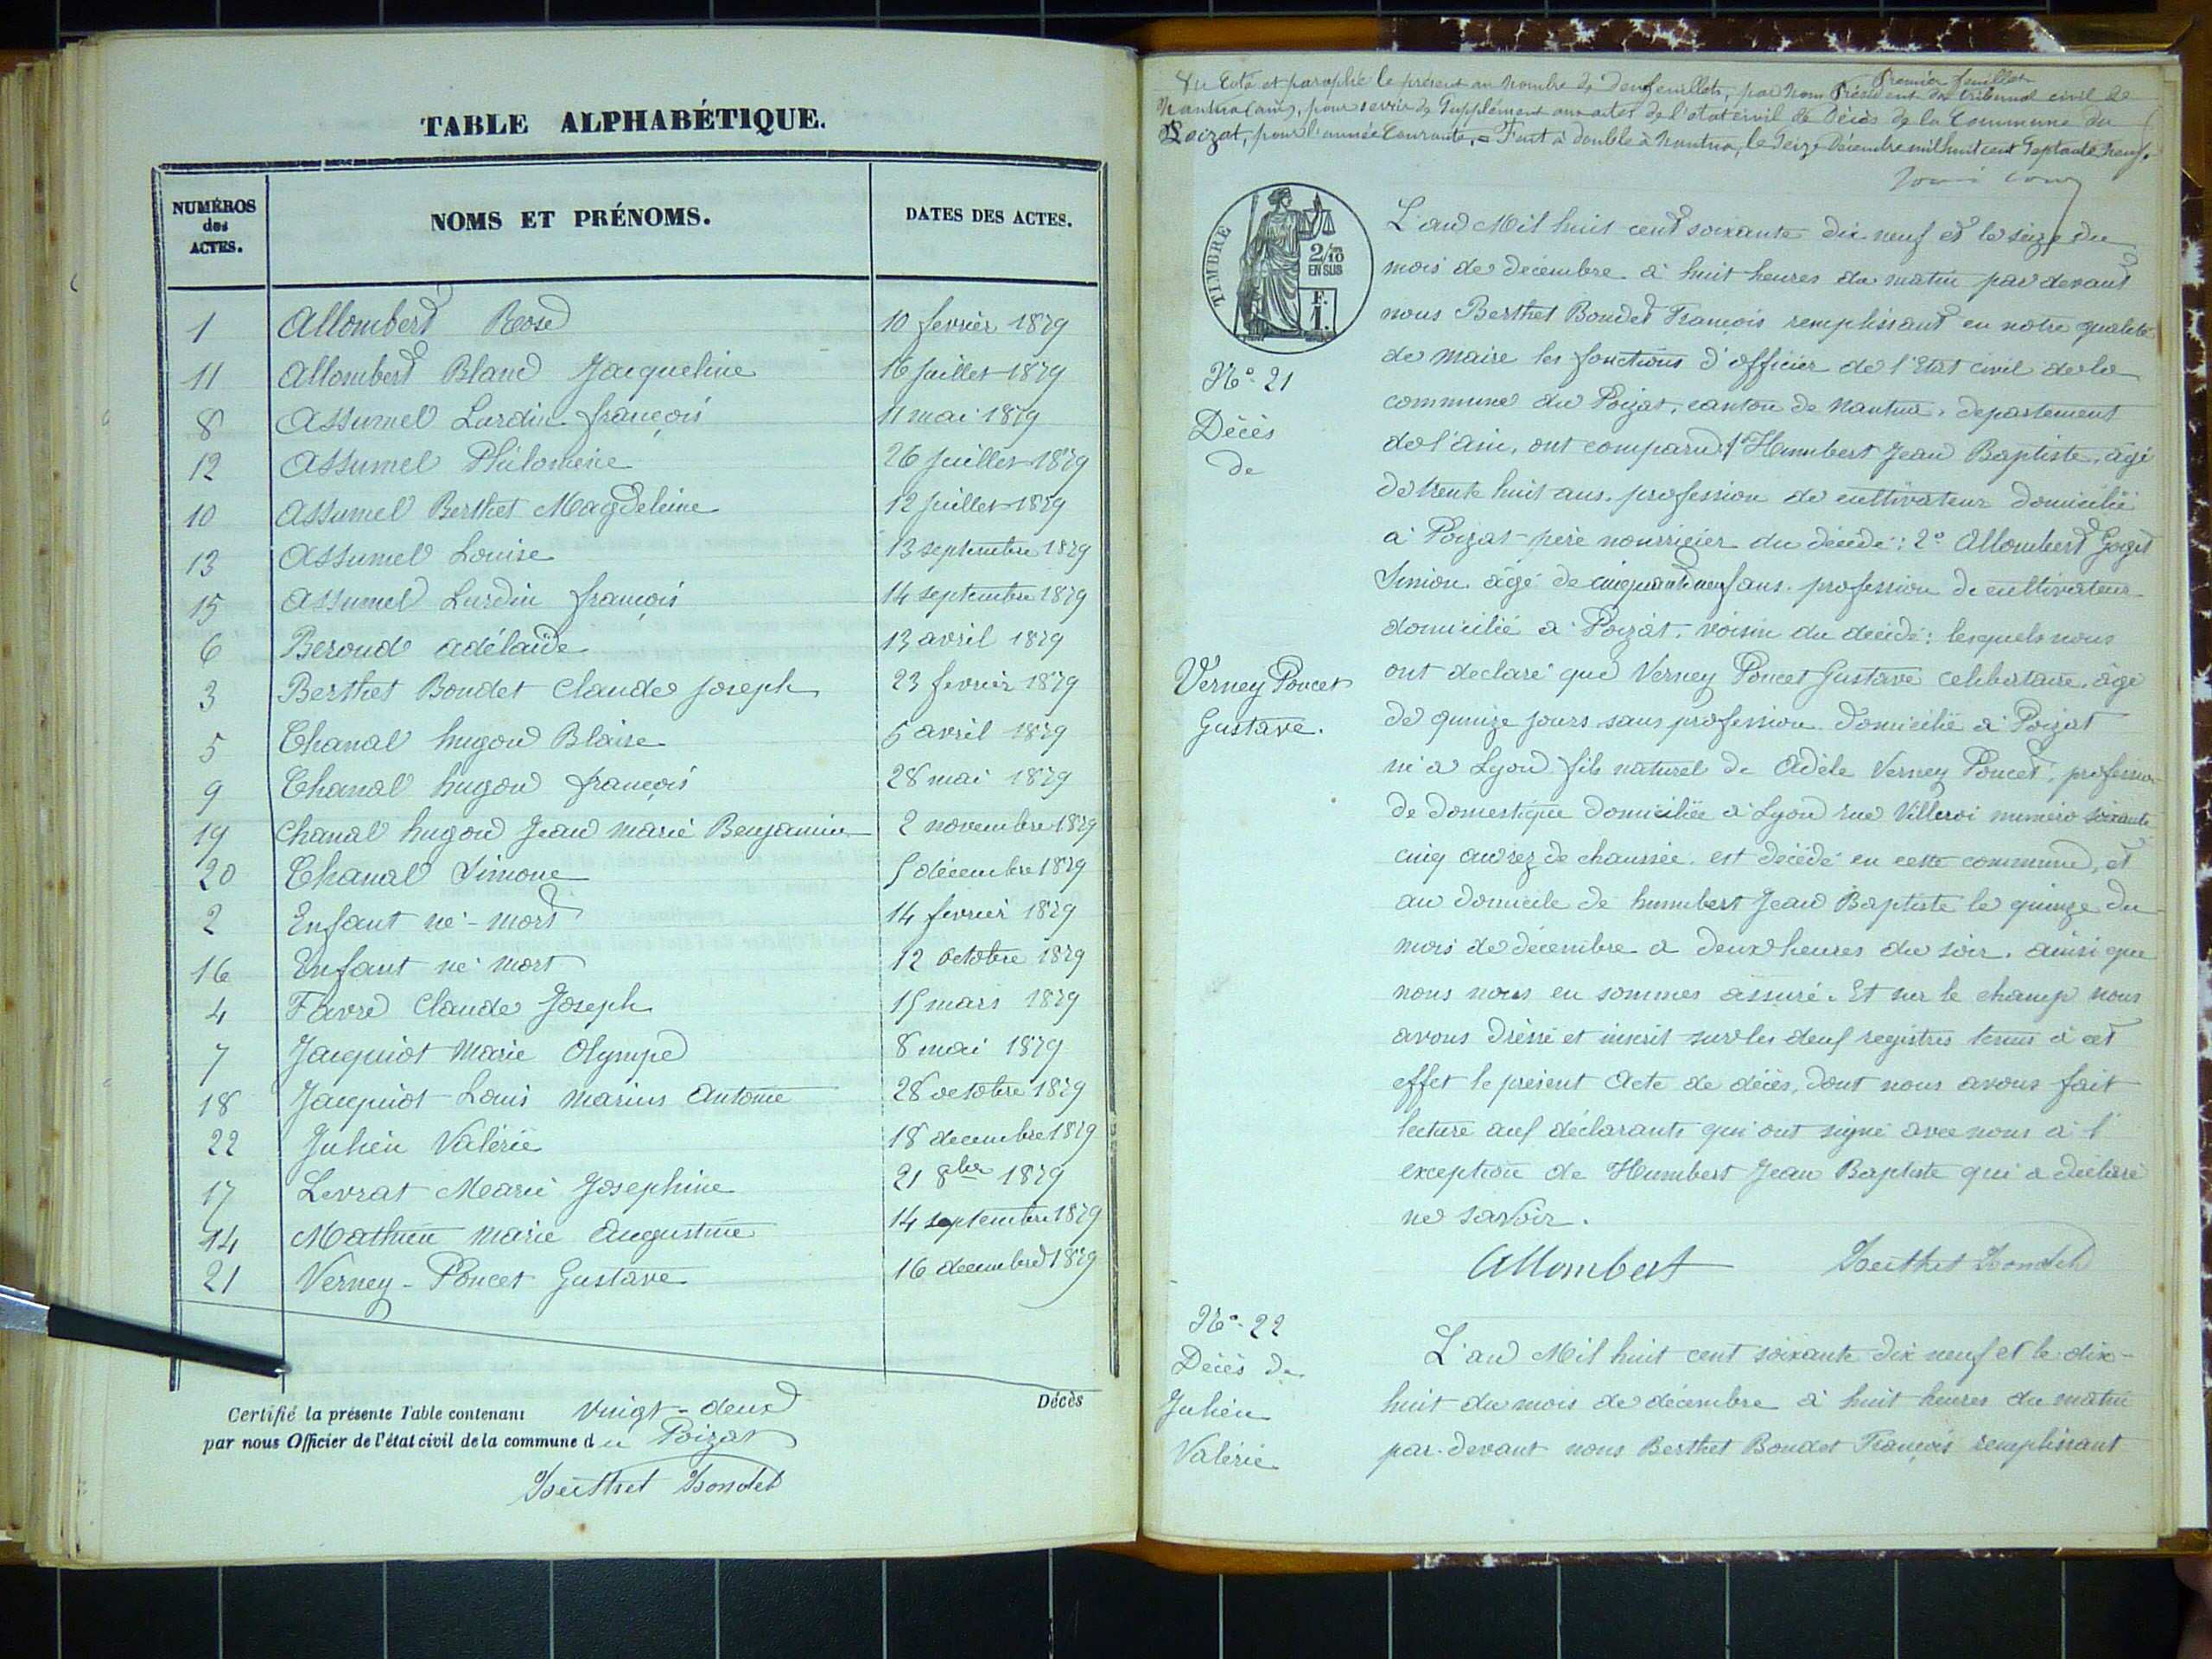 TABLE ALPHABÉTIQUE.
NUMÉROS des ACTES.
NOMS ET PRÉNOMS.
DATES DES ACTES.
1 Allombert Rose 10 fevrier 1879
11 Allombert Blanc Jacqueline 16 juillet 1879
8 Assumel Lurdin françois 11 mai 1879
12 Assumel Philomene 26 juillet 1879
10 Assumel Berthet Magdeleine 12 juillet 1879
13 Assumel Louise 13 septembre 1879
15 Assumel Lurdin françois 14 septembre 1879
6 Beroud adélaïde 13 avril 1879
3 Berthet Bondet Claude joseph 23 fevrier 1879
5 Chanal hugon Blaise 5 avril 1879
9 Chanal hugon françois 28 mai 1879
19 Chanal hugon Jean marie Benjamin 2 novembre 1879
20 Chanal Simone 5 décembre 1879
2 Enfant né-mort 14 fevrier 1879
16 Enfant né mort 12 octobre 1879
4 Favre Claude Joseph 15 mars 1879
7 Jacquiot Marie Olympe 8 mai 1879
18 Jacquiot Louis marius Antoine 28 octobre 1879
22 Julien Valérie 18 decembre 1879
17 Levrat Marie Josephine 21 8bre 1879
14 Mathieu marie Augustine 14 septembre 1879
21 Verney-Poncet Gustave 16 decembre 1879
Certifié la présente Table contenant vingt-deux Décès
par nous Officier de l'état civil de la commune du Poizat
Berthet Bondet
Premier feuillet
Vu Coté et paraphé le présent au nombre de deux feuillets, par nous Président du tribunal civil de
Nantua (ain), pour servir de Supplément aux actes de l'etat civil de Décès de la Commune du
Poizat, pour l'année Courante. = Fait à double à Nantua, le Seize Décembre mil huit cent Septante Neuf.
TIMBRE
2/10 EN SUS
F. 1.
N° 21
Décès
de
Verney Poncet
Gustave.
L'an Mil huit cent soixante dix neuf et le seize du
mois de decembre à huit heures du matin par devant
nous Berthet Bondet François remplissant en notre qualité
de maire les fonctions d'officier de l'Etat civil de la
commune du Poizat, canton de Nantua, departement
de l'ain, ont comparu 1° Humbert Jean Baptiste, âgé
de trente huit ans, profession de cultivateur domicilié
à Poizat père nourricier du décédé; 2° Allombert Goget
Simon âgé de cinquante neuf ans, profession de cultivateur
domicilié à Poizat, voisin du decédé; lesquels nous
ont declaré que Verney Poncet Gustave celibertaire, âgé
de quinze jours sans profession domicilié à Poizat
né à Lyon fils naturel de Adèle Verney Poncet, profession
de domestique domiciliée à Lyon rue Villeroi numéro soixante
cinq au rez de chaussée, est décédé en cette commune, et
au domicile de humbert Jean Baptiste le quinze du
mois de décembre a deux heures du soir, ainsi que
nous nous en sommes assuré. Et sur le champ nous
avons dressé et inscrit sur les deux registres tenus à cet
effet le présent Acte de décès, dont nous avons fait
lecture aux déclarants qui ont signé avec nous à l'
exception de Humbert Jean Baptiste qui a déclaré
ne savoir.
Allombert Berthet Bondet
N° 22
Décès de
Julien
Valérie
L'an Mil huit cent soixante dix neuf et le dix-
huit du mois de décembre à huit heures du matin
par devant nous Berthet Bondet François remplissant